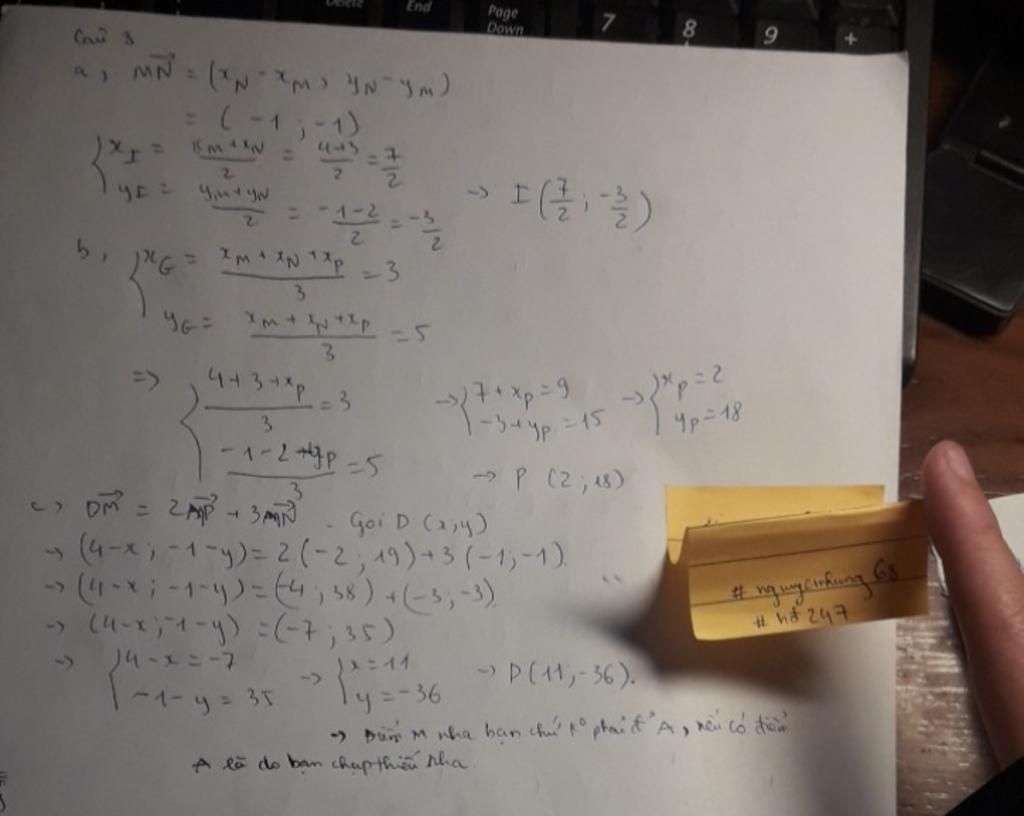 Delete
End
Page Down
7
8
9
+
Câu 3
a, $\overrightarrow{MN} = (x_N - x_M ; y_N - y_M)$
$= (-1 ; -1)$
$\begin{cases} x_I = \frac{x_M + x_N}{2} = \frac{4+3}{2} = \frac{7}{2} \\ y_I = \frac{y_M + y_N}{2} = \frac{-1-2}{2} = \frac{-3}{2} \end{cases}$ → $I\left(\frac{7}{2} ; \frac{-3}{2}\right)$
b, $\begin{cases} x_G = \frac{x_M + x_N + x_P}{3} = 3 \\ y_G = \frac{x_M + x_N + x_P}{3} = 5 \end{cases}$
=> $\begin{cases} \frac{4+3+x_P}{3} = 3 \\ \frac{-1-2+y_P}{3} = 5 \end{cases}$ → $\begin{cases} 7 + x_P = 9 \\ -3 + y_P = 15 \end{cases}$ → $\begin{cases} x_P = 2 \\ y_P = 18 \end{cases}$
→ P (2 ; 18)
c, $\overrightarrow{DM} = 2\overrightarrow{MP} + 3\overrightarrow{MN}$. Gọi D (x;y)
→ (4-x ; -1-y) = 2(-2 ; 19) + 3(-1 ; -1).
→ (4-x ; -1-y) = (-4 ; 38) + (-3 ; -3).
→ (4-x ; -1-y) = (-7 ; 35)
→ $\begin{cases} 4-x = -7 \\ -1-y = 35 \end{cases}$ → $\begin{cases} x = 11 \\ y = -36 \end{cases}$ → D(11 ; -36).
→ Điểm M nha bạn chứ k° phải đ' A, nếu có điểm
A là do bạn chụp thiếu nha.
# nguyenhung 68
# hđ 247